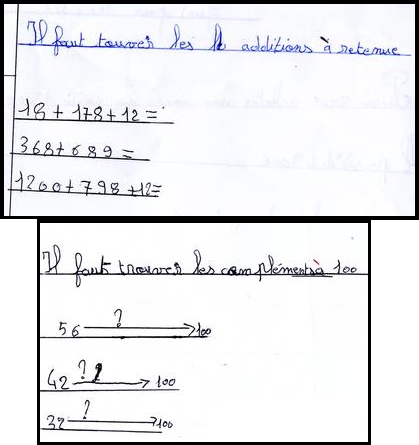 Il faut touver les additions à retenue
18 + 178 + 12 =
368 + 689 =
1200 + 798 + 12 =
Il faut trouver les compléments à 100
56 ? 100
42 ? 100
32 ? 100